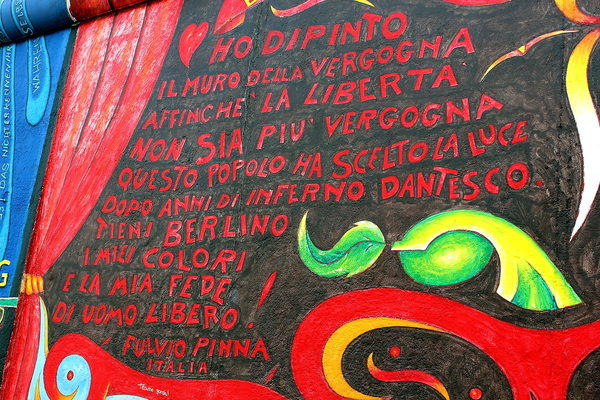 HO DIPINTO
IL MURO DELLA VERGOGNA
AFFINCHE' LA LIBERTA
NON SIA PIU' VERGOGNA
QUESTO POPOLO HA SCELTO LA LUCE
DOPO ANNI DI INFERNO DANTESCO.
TIENI BERLINO
I MIEI COLORI
E LA MIA FEDE
DI UOMO LIBERO!
FULVIO PINNA
ITALIA
DAS NICHT ERKENNEN